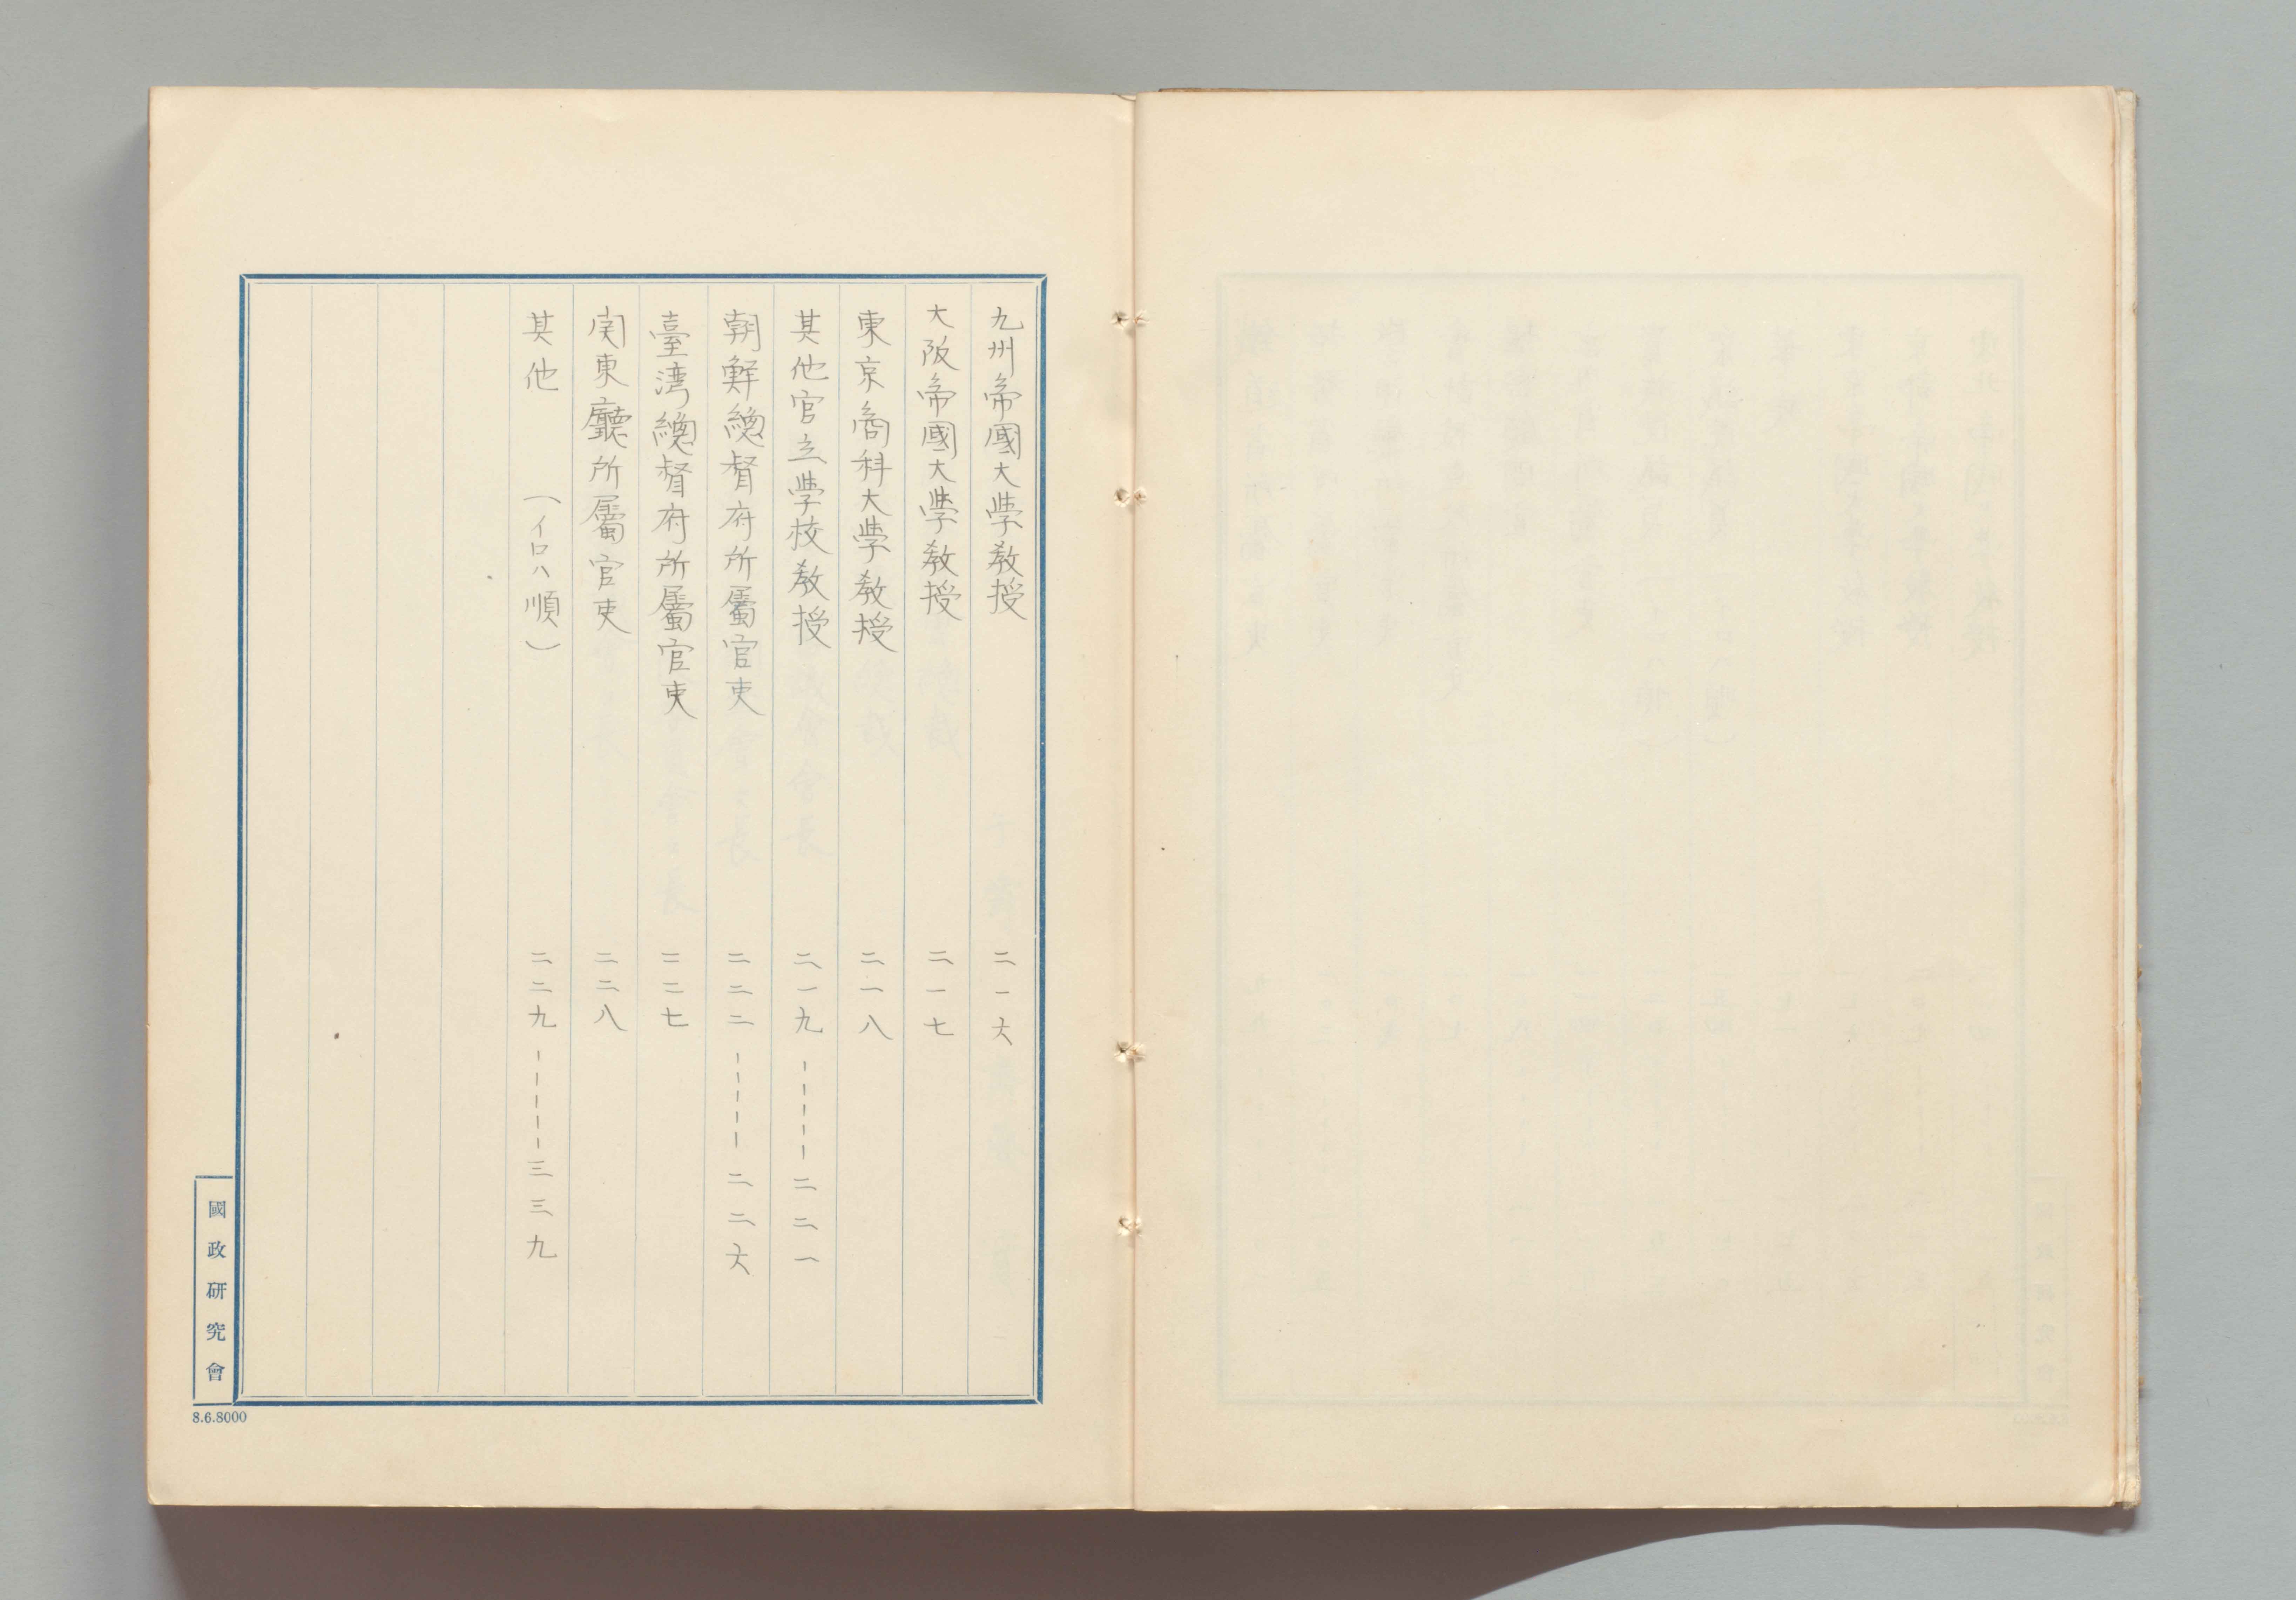 九州帝國大學教授 二一六
大阪帝國大學教授 二一七
東京商科大學教授 二一八
其他官立學校教授 二一九-----二二一
朝鮮總督府所屬官吏 二二二-----二二六
臺湾總督府所屬官吏 二二七
関東廳所屬官吏 二二八
其他 （イロハ順） 二二九-----三三九
國政研究會
8.6.8000